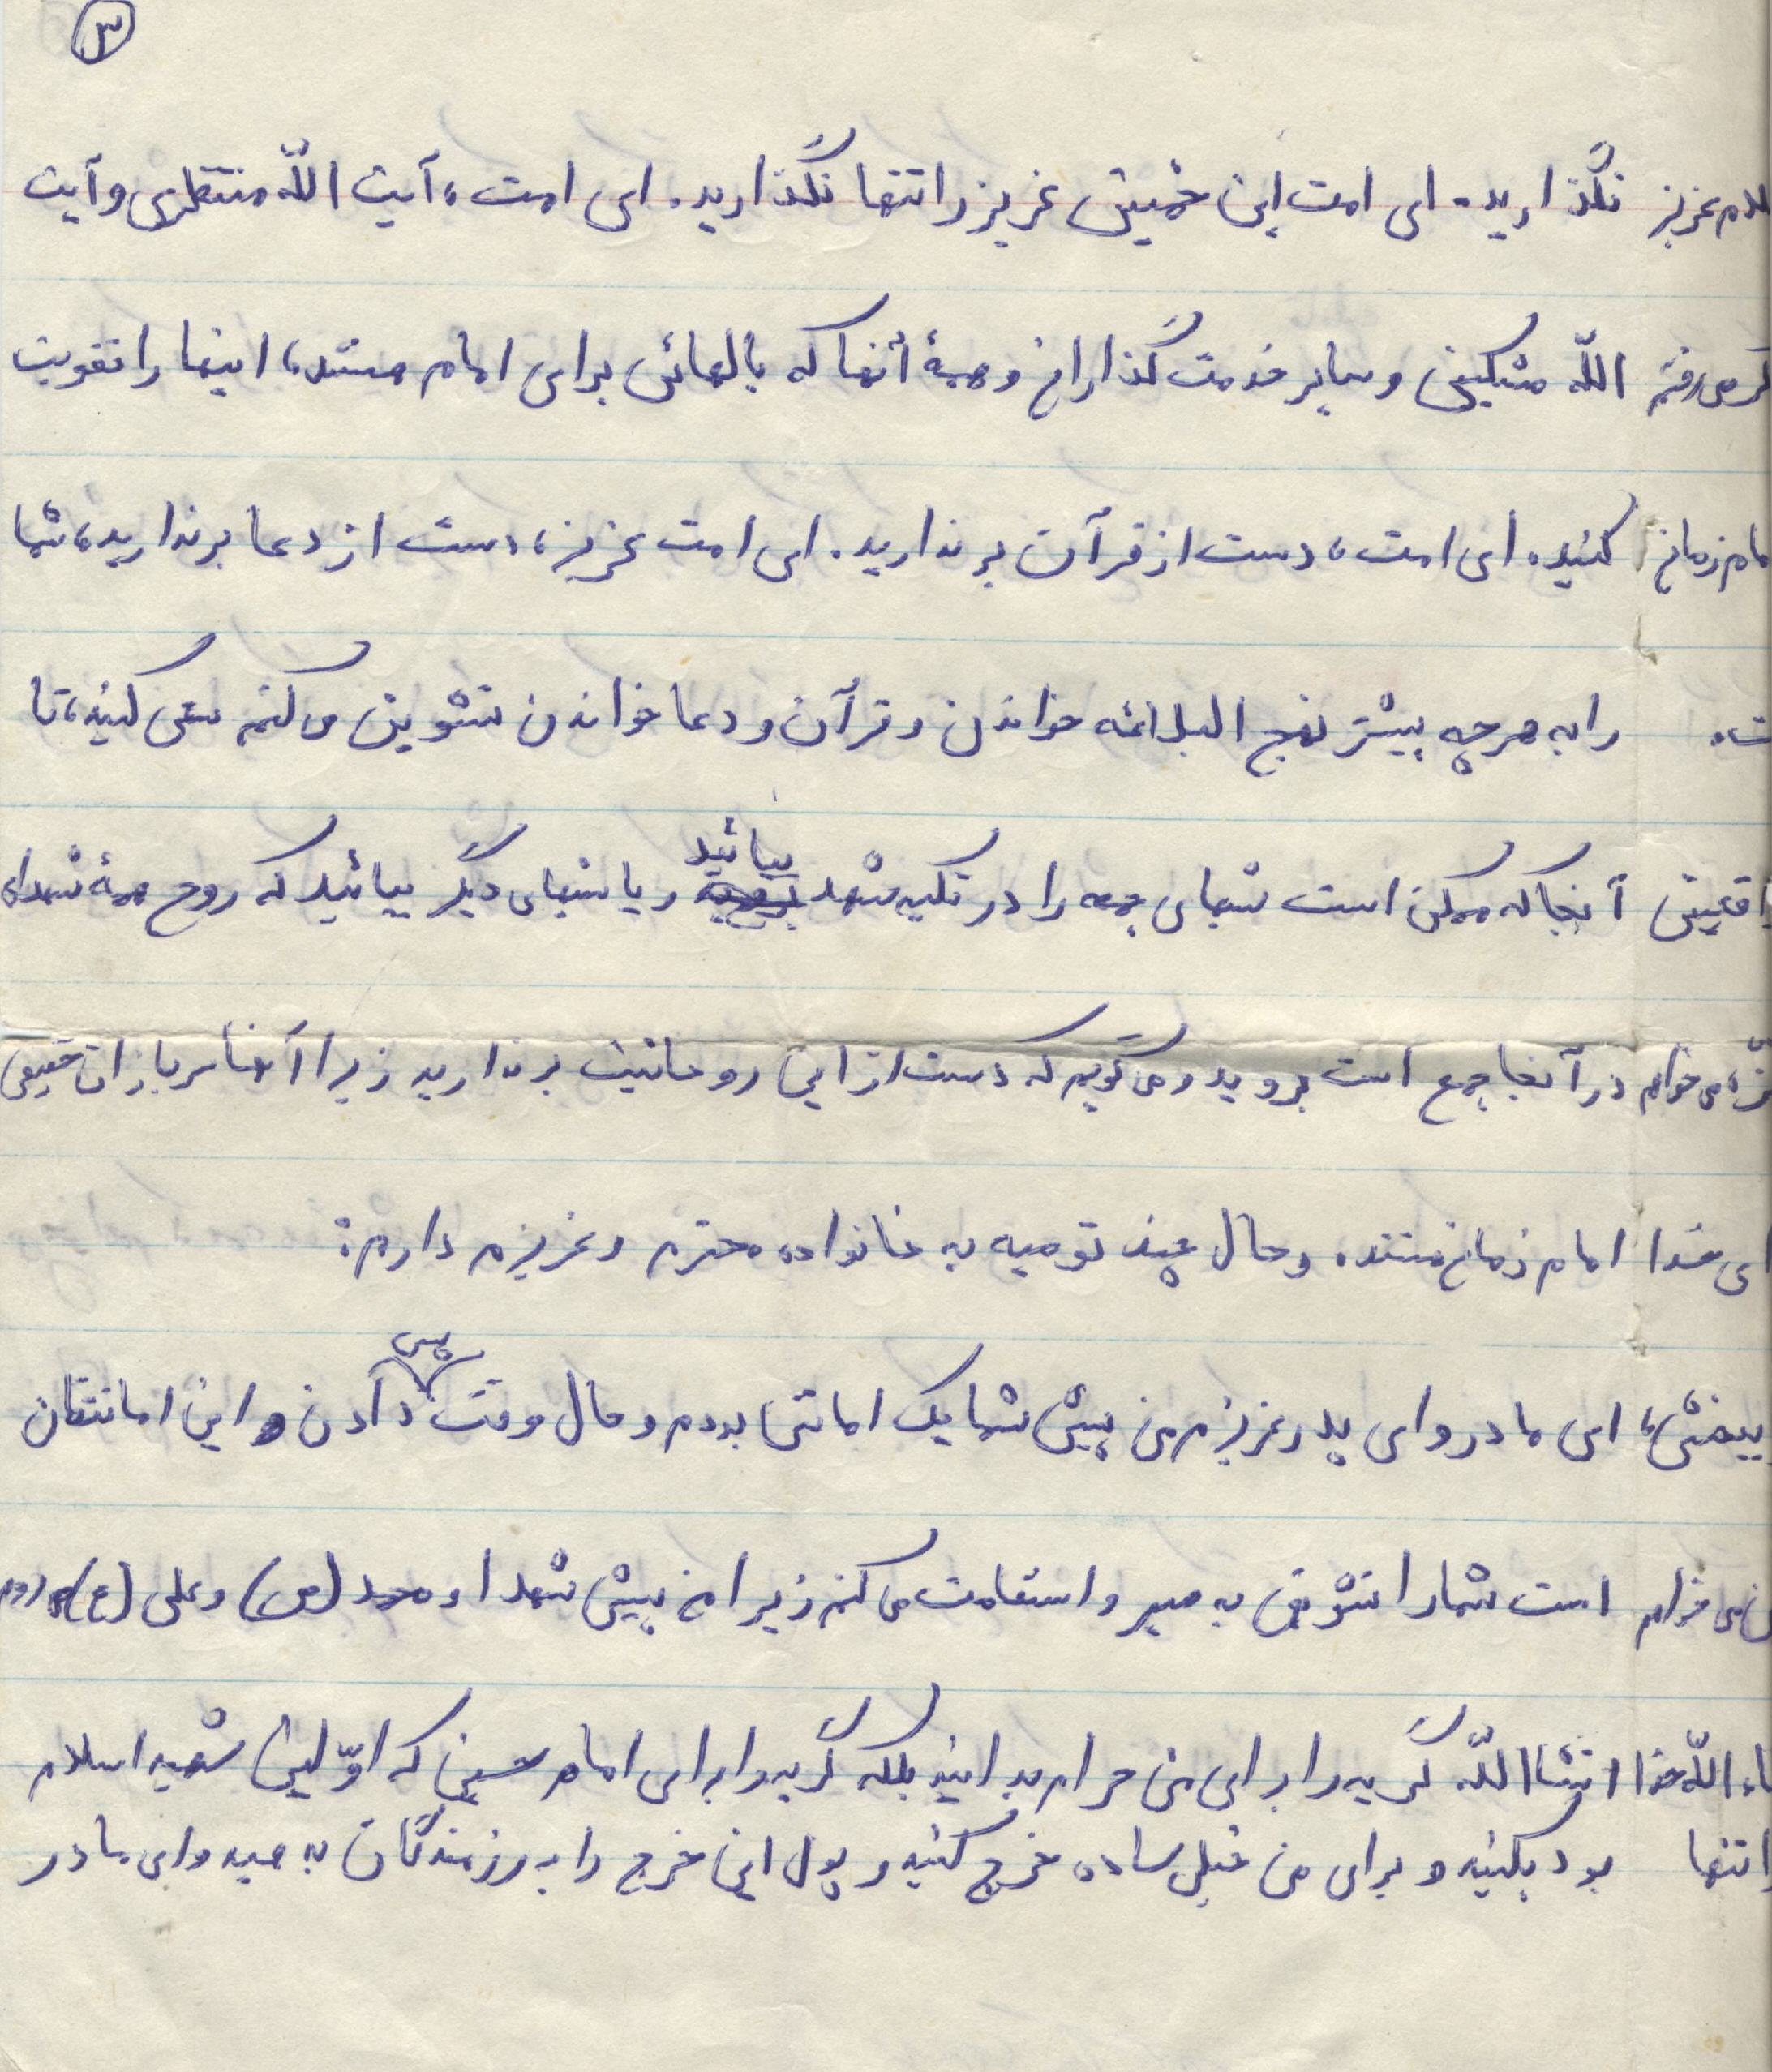 ۳
نگذارید. ای امت این خمینی عزیز را تنها نگذارید. ای امت، آیت اللّه منتظری و آیت
اللّه مشکینی و سایر خدمت گذاران و همهٔ آنها که بالهائی برای امام هستند، اینها را تقویت
کنید. ای امت، دست از قرآن برندارید. ای امت عزیز، دست از دعا برندارید، شما
را به هر چه بیشتر نهج البلاغه خواندن و قرآن و دعا خواندن تشویق می کنم سعی کنید، تا
آنجا که ممکن است شبهای جمعه را در تکیه شهد بیائید و یا شبهای دیگر بیائید که روح همهٔ شهدای
در آنجا جمع است بروید و می گویم که دست از این روحانیت برندارید زیرا آنها سربازان حقیقی
امام زمان هستند. و حال چند توصیه به خانواده محترم و عزیزم دارم:
ای مادر و ای پدر عزیزم من پیش شما یک امانتی بودم و حال وقت پس دادن این امانتتان
است شما را تشویق به صبر و استقامت می کنم زیرا من پیش شهدا و محمد (ص) و علی (ع)
انشااللّه گریه را برای من حرام بدانید بلکه گریه را برای امام حسین که اوّلین شهید اسلام
بود بکنید و برای من خیلی ساده خرج کنید و پول این خرج را به رزمندگان بدهید و ای مادر